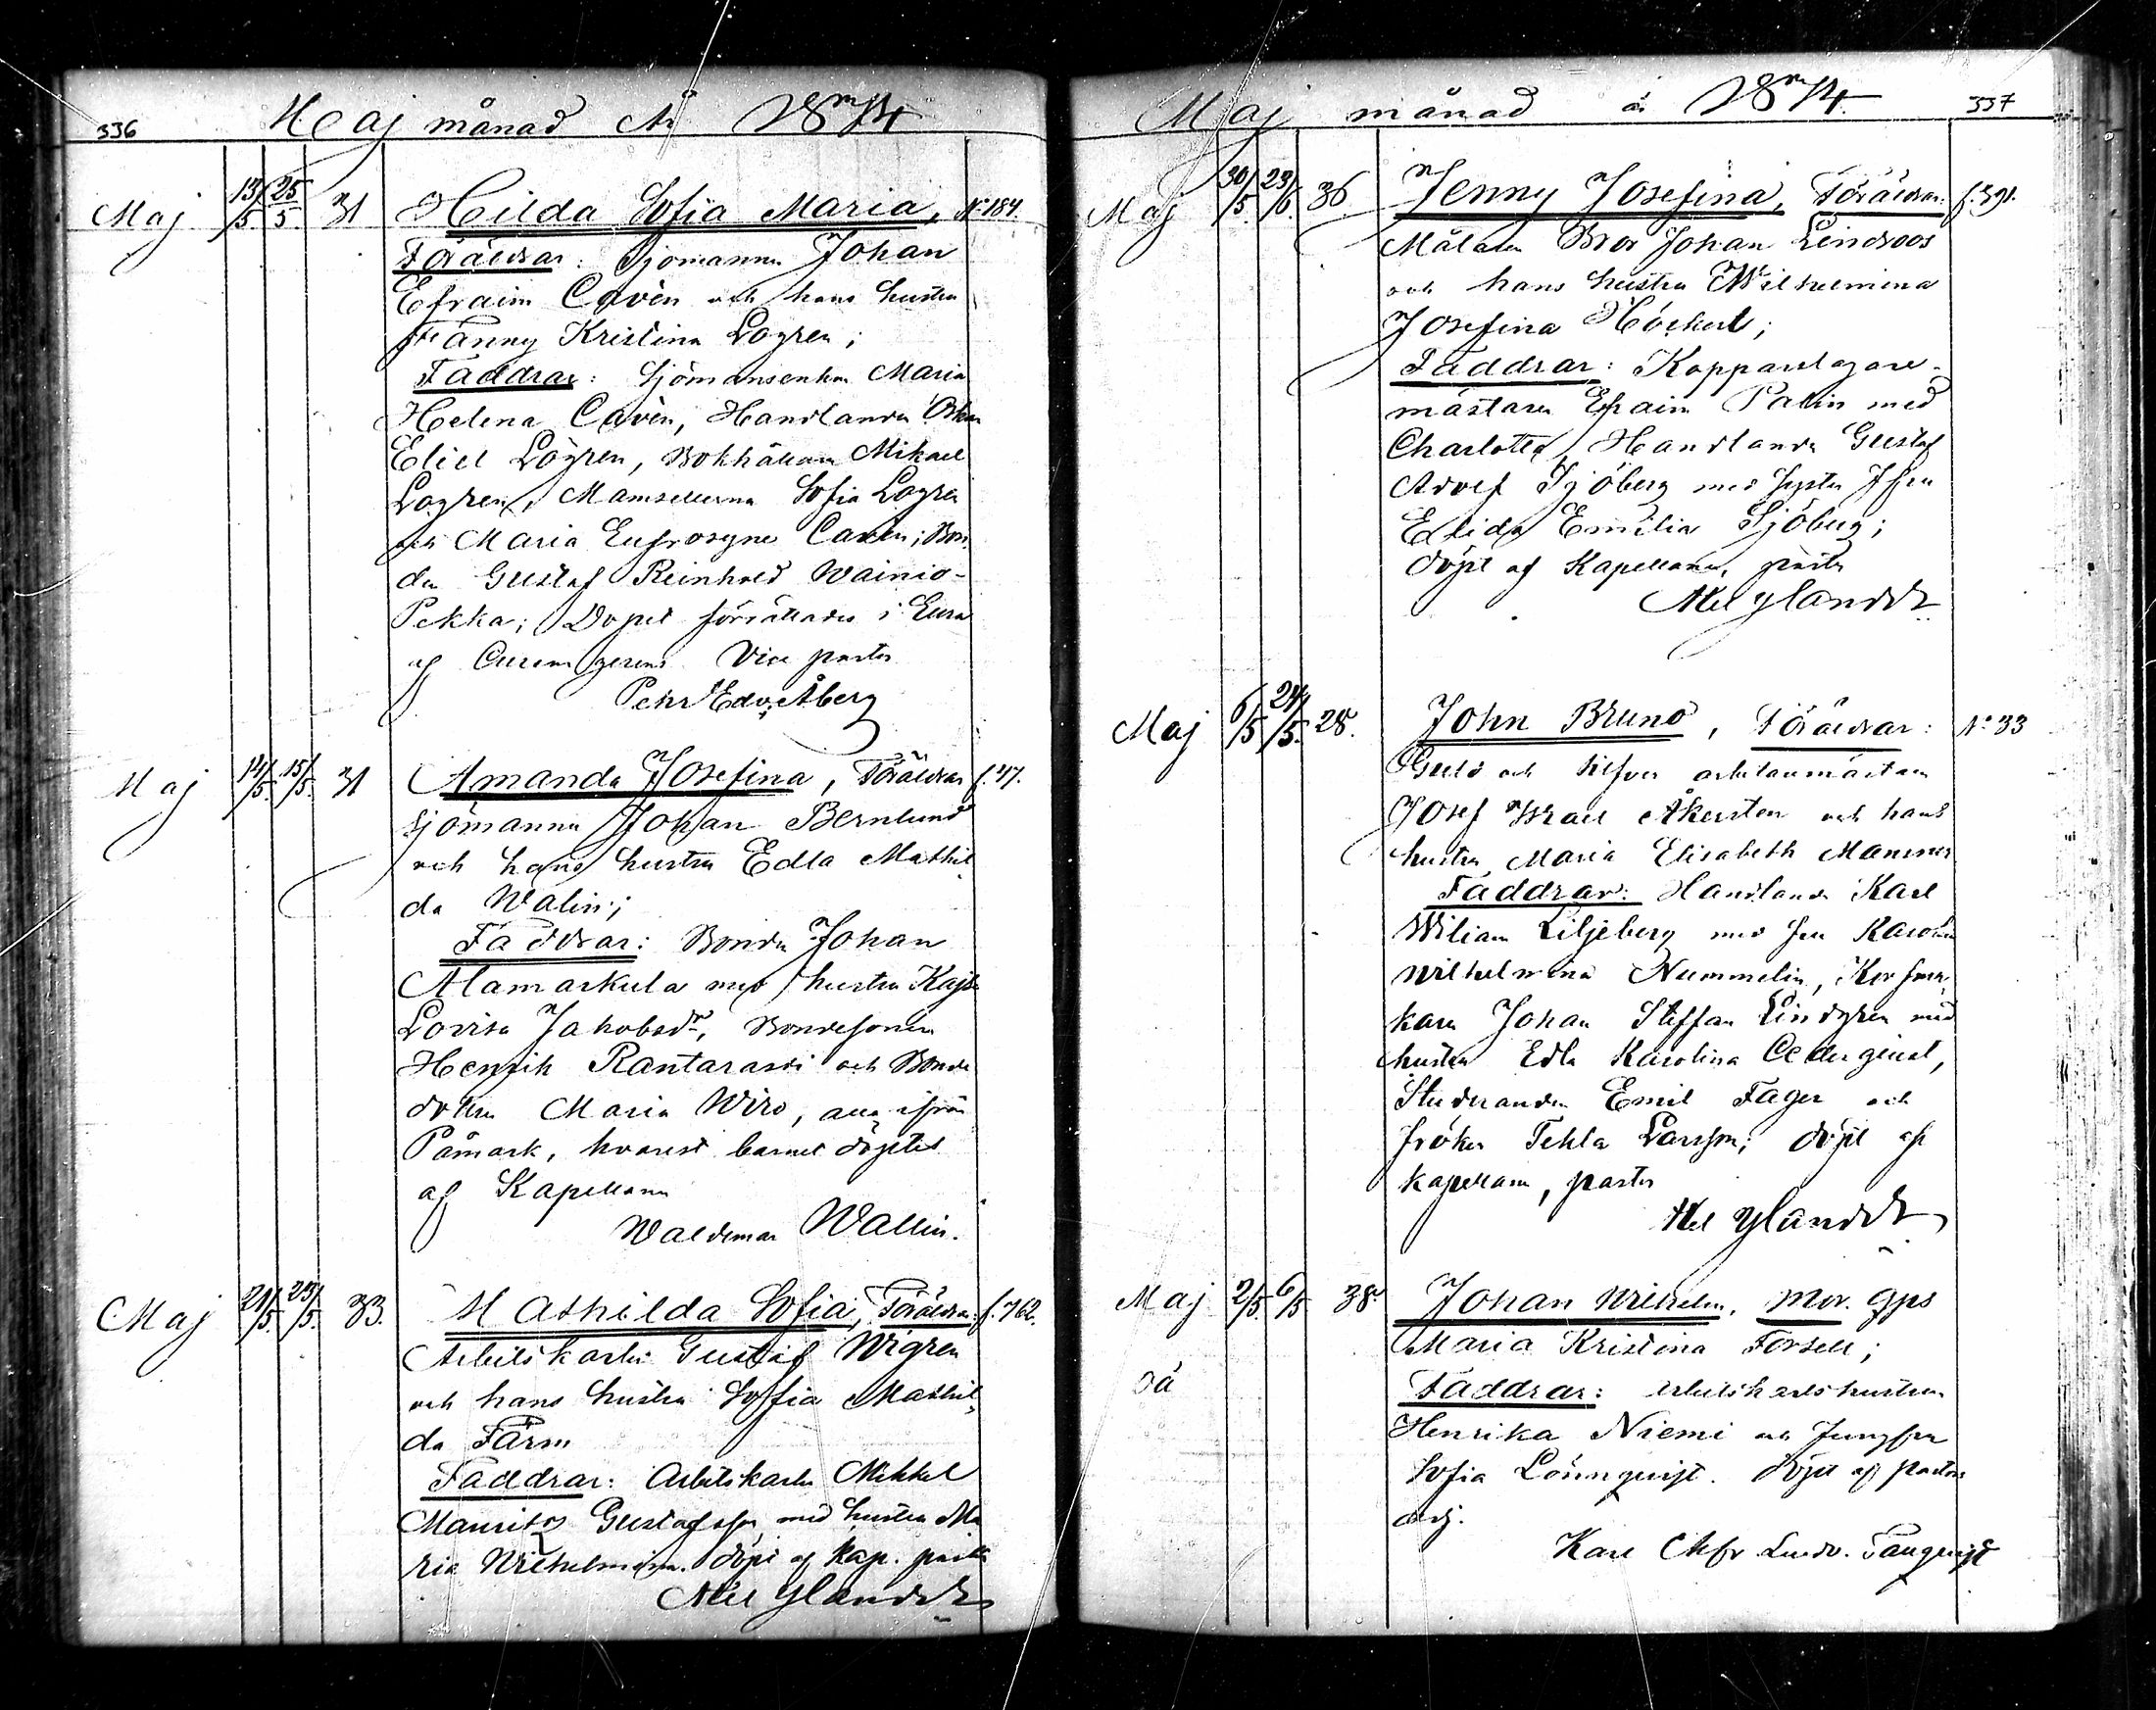 336
Maj månad År 1874
Maj 13/5 25/5 31 Hilda Sofia Maria, N:184.
Föräldrar: Sjömannen Johan
Efraim Cavén och hans hustru
Fanny Kristina Logren;
Faddrar: Sjömansenkan Maria
Helena Cavén, Handlanden Oskar
Eliel Lögren, Bokhållaren Mikael
Logren, Mamsellerna Sofia Logren
och Maria Eufrosyne Cavén; Bon-
den Gustaf Reinhold Wainio-
Pekka; Dopet förrättades i Eura
af Curam gerens Vice pastor
Pehr Edv. Åberg
Maj 14/5 15/5 31 Amanda Josefina, Föräldrar f.47.
Sjömannen Johan Bernlund
och hans hustru Edla Mathil-
da Walin;
Faddrar: Bonden Johan
Alamarkula med hustru Kajsa
Lovisa Jakobsdr, Bondesonen
Henrik Rantarasti och Bonde
dottern Maria Wiro, alla ifrån
Påmark, hvarest barnet döptes
af Kapellanen
Waldemar Wallin.
Maj 21/5 23/5 33. Mathilda Sofia, Föräldrar: f.762.
Arbetskarlen Gustaf Wigren
och hans hustru Sofia Mathil-
da Färm
Faddrar: Arbetskarlen Mikkel
Mauritz Gustafsson med hustru Ma
ria Wilhelmina. döpt af Kap. pastor
Ylander
337
Maj månad år 1874.
Maj 30/5 23/6 36 Jenny Josefina, Föräldrar: f.391.
Målaren Bror Johan Lindroos
och hans hustru Wilhelmina
Josefina Höckert;
Faddrar: Kopparslagare-
mästaren Efraim Palin med
Charlotta, Handlanden Gustaf
Adolf Sjöberg med syster Jfru
Elida Emilia Sjöberg;
döpt af Kapellanen, pastor
Ylander
Maj 6/5 24/5 28. John Bruno, Föräldrar: N:o 33
Guld och silfver arbetaremästaren
Josef Israel Åkersten och hans
hustru Maria Elisabeth Mansner
Faddrar: Handlanden Karl
Wiliam Liljeberg med fru Karolina
Wilhelmina Nummelin, Korfma-
karen Johan Steffan Lindgren med
hustru Edla Karolina Cederqvist,
Studeranden Emil Fager och
fröken Tekla Larsson; döpt af
kapellanen, pastor
Ylander
Maj 2/5 6/5 38. Johan Wilhelm, Mor. gps
Maria Kristina Forsell;
oä Faddrar: Arbetskarlshustrun
Henrika Niemi och Jungfru
Sofia Lönnqvist. Döpt af pastors
adj.
Karl Lindv. Tängqvist